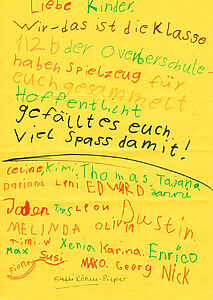 Liebe Kinder,
wir-das ist die Klasse
1/2b der Overbergschule-
haben spielzeug für
euch gesammelt
Hoffentlicht
gefälltes euch.
Viel Spass damit!
Celine, Kimi, Thomas Tatjana
Dariana Leni EDWARD
Jaden Tim Leon Dustin
MELINDA OLIVIA
Timi.W Xenia Karina. Enrico
Max Susi. MAXO. Georg Nick
Fionn